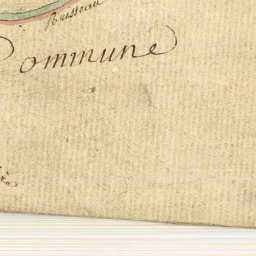 Ruisseau
Commune